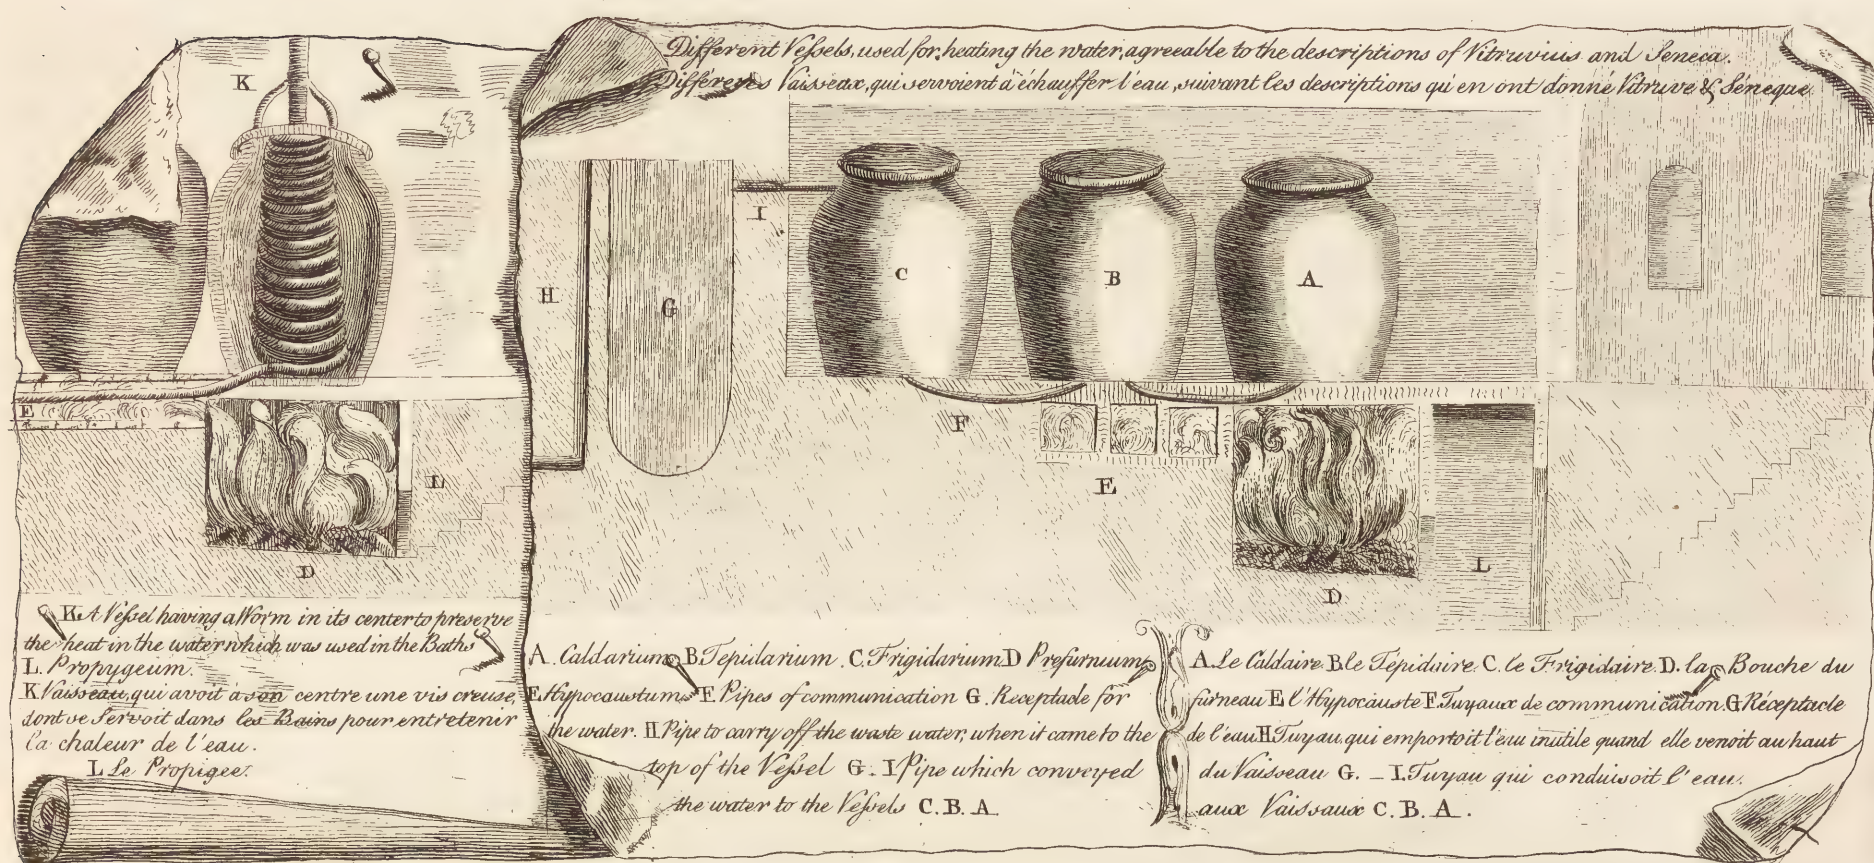 Different Vessels, used for heating the water, agreeable to the descriptions of Vitruvius and Seneca.
Différens Vaisseaux, qui servoient à échauffer l'eau, suivant les descriptions qu'en ont donné Vitruve & Séneque
K
H
G
I
C
B
A
F
E
E
D
L
D
L
K. A Vessel having a Worm in its center to preserve
the heat in the water which was used in the Baths
L. Propygeum.
K Vaisseau, qui avoit à son centre une vis creuse,
dont se Servoit dans les Bains pour entretenir
la chaleur de l'eau.
L Le Propigee.
A. Caldarium B. Tepidarium C. Frigidarium D Prefurnium
E Hypocaustum F Pipes of communication G. Receptacle for
the water. H Pipe to carry off the waste water, when it came to the
top of the Vessel G. I Pipe which conveyed
the water to the Vessels C. B. A.
A. Le Caldaire. B. le Tépidaire. C. le Frigidaire. D. la Bouche du
furneau E l'Hypocauste F. Tuyaux de communication. G Réceptacle
de l'eau H. Tuyau qui emportoit l'eau inutile quand elle venoit au haut
du Vaisseau G. – I. Tuyau qui conduisoit l'eau.
aux Vaissaux C. B. A.